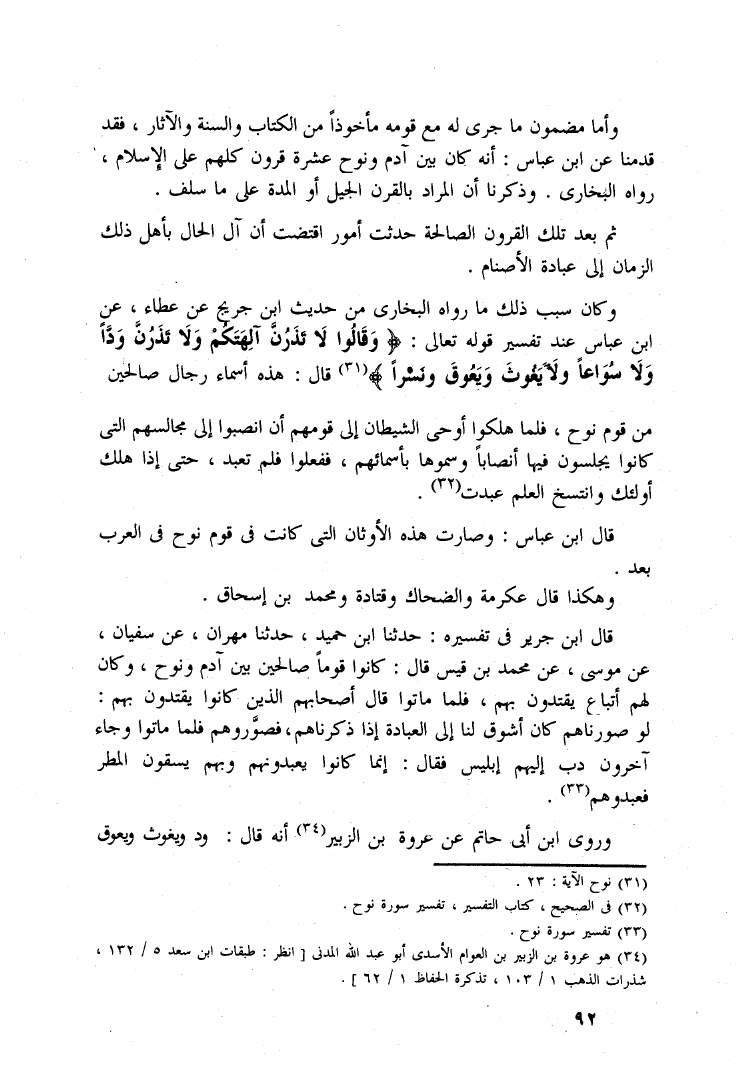 وأما مضمون ما جرى له مع قومه مأخوذاً من الكتاب والسنة والآثار ، فقد
قدمنا عن ابن عباس : أنه كان بين آدم ونوح عشرة قرون كلهم على الإسلام ،
رواه البخارى . وذكرنا أن المراد بالقرن الجيل أو المدة على ما سلف .
ثم بعد تلك القرون الصالحة حدثت أمور اقتضت أن آل الحال بأهل ذلك
الزمان إلى عبادة الأصنام .
وكان سبب ذلك ما رواه البخارى من حديث ابن جريج عن عطاء ، عن
ابن عباس عند تفسير قوله تعالى : ﴿ وَقَالُوا لَا تَذَرُنَّ آلِهَتَكُمْ وَلَا تَذَرُنَّ وَدًّا
وَلَا سُوَاعاً ولَا يَغُوثَ وَيَعُوقَ ونَسْراً ﴾(٣١) قال : هذه أسماء رجال صالحين
من قوم نوح ، فلما هلكوا أوحى الشيطان إلى قومهم أن انصبوا إلى مجالسهم التى
كانوا يجلسون فيها أنصاباً وسموها بأسمائهم ، ففعلوا فلم تعبد ، حتى إذا هلك
أولئك وانتسخ العلم عبدت(٣٢) .
قال ابن عباس : وصارت هذه الأوثان التى كانت فى قوم نوح فى العرب
بعد .
وهكذا قال عكرمة والضحاك وقتادة ومحمد بن إسحاق .
قال ابن جرير فى تفسيره : حدثنا ابن حميد ، حدثنا مهران ، عن سفيان ،
عن موسى ، عن محمد بن قيس قال : كانوا قوماً صالحين بين آدم ونوح ، وكان
لهم أتباع يقتدون بهم ، فلما ماتوا قال أصحابهم الذين كانوا يقتدون بهم :
لو صورناهم كان أشوق لنا إلى العبادة إذا ذكرناهم، فصوَّروهم فلما ماتوا وجاء
آخرون دب إليهم إبليس فقال : إنما كانوا يعبدونهم وبهم يسقون المطر
فعبدوهم(٣٣) .
وروى ابن أبى حاتم عن عروة بن الزبير(٣٤) أنه قال : ود ويغوث ويعوق
(٣١) نوح الآية : ٢٣ .
(٣٢) فى الصحيح ، كتاب التفسير ، تفسير سورة نوح .
(٣٣) تفسير سورة نوح .
(٣٤) هو عروة بن الزبير بن العوام الأسدى أبو عبد الله المدنى [ انظر : طبقات ابن سعد ٥ / ١٣٢ ،
شذرات الذهب ١ / ١٠٣ ، تذكرة الحفاظ ١ / ٦٢ ] .
٩٢